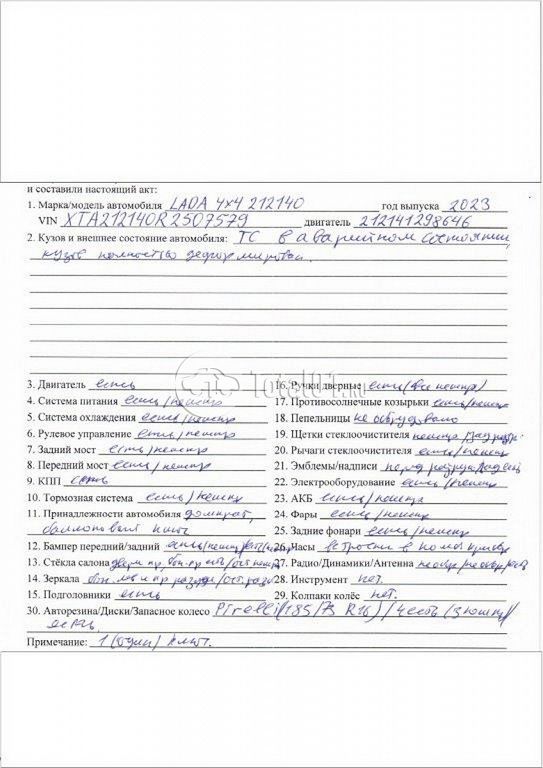 и составили настоящий акт:
1. Марка/модель автомобиля LADA 4x4 212140 год выпуска 2023
VIN XTA212140R2507579 двигатель 212141298646
2. Кузов и внешнее состояние автомобиля: ТС в аварийном состоянии,
кузов полностью деформирован.
Total01.ru
3. Двигатель есть
16. Ручки дверные есть/(все неиспр)
4. Система питания есть/неиспр
17. Противосолнечные козырьки есть/неиспр
5. Система охлаждения есть/неиспр
18. Пепельницы не оборудовано
6. Рулевое управление есть/неиспр
19. Щетки стеклоочистителя неиспр
7. Задний мост есть/неиспр
20. Рычаги стеклоочистителя есть/неиспр
8. Передний мост есть/неиспр
21. Эмблемы/надписи
9. КПП есть
22. Электрооборудование есть/неиспр
10. Тормозная система есть/неиспр
23. АКБ есть/неиспр
11. Принадлежности автомобиля домкрат,
24. Фары есть/неиспр
баллонный ключ
25. Задние фонари есть/неиспр
12. Бампер передний/задний есть/неиспр
26. Часы
13. Стёкла салона
27. Радио/Динамики/Антенна
14. Зеркала
28. Инструмент нет.
15. Подголовники есть
29. Колпаки колёс нет.
30. Авторезина/Диски/Запасное колесо Pirelli (185/75 R16) / 4 есть
есть.
Примечание: 1 (один) ключ.